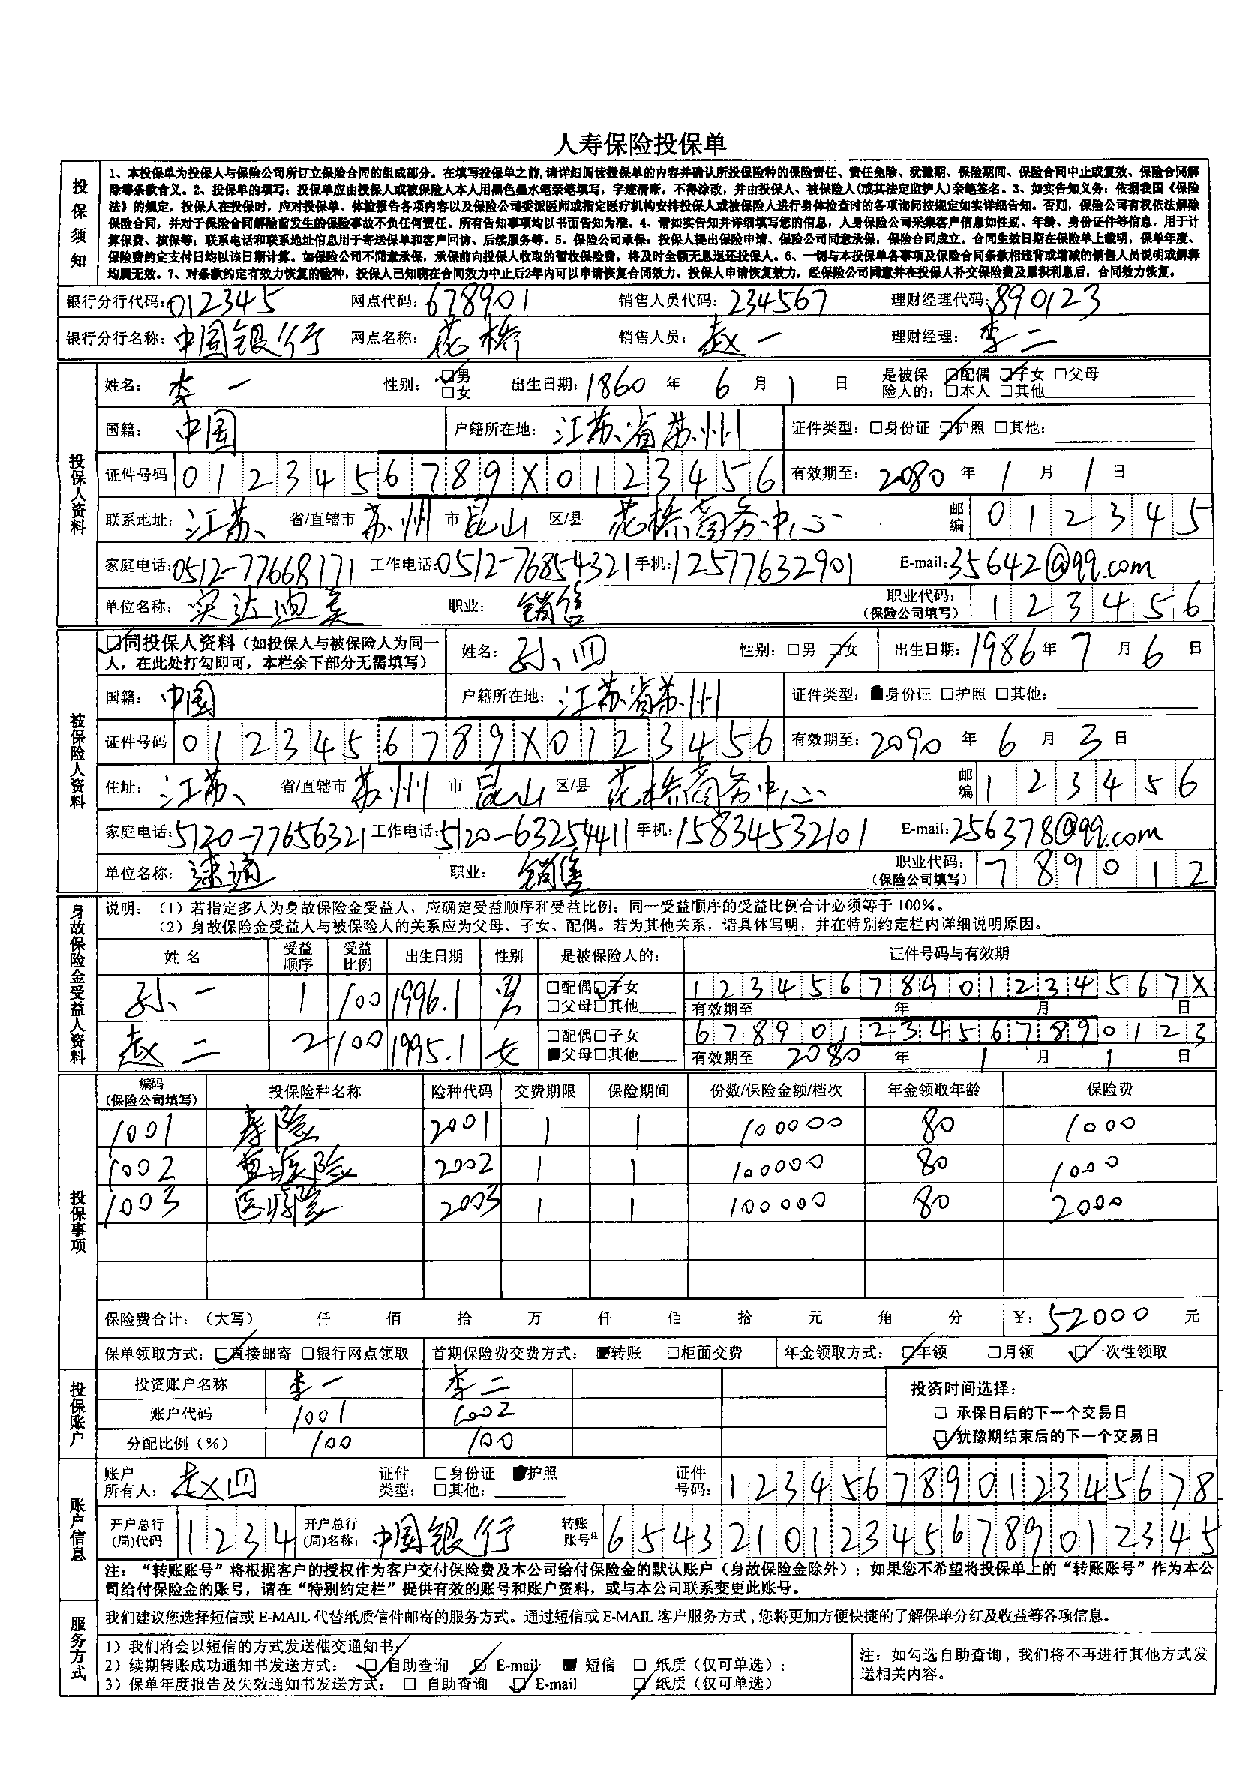 人寿保险投保单
投保须知
1、本投保单为投保人与保险公司所订立保险合同的组成部分。在填写投保单之前,请详细阅读投保险种的保险责任、责任免除、犹豫期、保险期间、保险合同中止或复效、保险合同解
除等条款含义。2、投保单的填写：投保单应由投保人或被保险人本人用黑色墨水笔亲笔填写，字迹清晰，不得涂改，并由投保人、被保险人(或其法定监护人)亲笔签名。3、如实告知义务：依据我国《保险
法》的规定，投保人在投保时，应对投保单、体检报告各项内容以及保险公司委派医师或指定医疗机构安排投保人或被保险人进行身体检查时的各项询问按规定如实详细告知。否则，保险公司有权依法解除
保险合同，并对于保险合同解除前发生的保险事故不负任何责任。所有告知事项均以书面告知为准。4、请如实告知并详细填写您的信息，人身保险公司采集客户信息如性别、年龄、身份证件等信息，用于计
算保费、核保等，联系电话和联系地址信息用于寄送保单和客户回访、后续服务等。5、保险公司承保：投保人提出保险申请、保险公司同意承保，保险合同成立。合同生效日期在保险单上载明，保单年度、
保险费约定支付日均以该日期计算。如保险公司不同意承保，承保前向投保人收取的暂收保险费，将及时全额无息退还投保人。6、一切与本投保单各事项及保险合同条款相违背或增减的销售人员说明或解释
均属无效。7、对条款约定有效力恢复的险种，投保人已知晓在合同效力中止后2年内可以申请恢复合同效力。投保人申请恢复效力，经保险公司同意并在投保人补交保险费及累积利息后，合同效力恢复。
银行分行代码:012345 网点代码:678901 销售人员代码:234567 理财经理代码:890123
银行分行名称:中国银行 网点名称:花桥 销售人员:赵一 理财经理:李二
投保人资料
姓名：李一 性别：□男 □女 出生日期:1860年6月1日 是被保险人的：□配偶 □子女 □父母 □本人 □其他
国籍：中国 户籍所在地：江苏省苏州 证件类型：□身份证 □护照 □其他:
证件号码 0123456789X0123456 有效期至：2080年1月1日
联系地址：江苏 省/直辖市 苏州 市 昆山 区/县 花桥商务中心 邮编 012345
家庭电话:0512-77668171 工作电话:0512-76854321 手机:12577632901 E-mail:35642@qq.com
单位名称：实达迪美 职业：销售 职业代码：(保险公司填写) 123456
被保险人资料
□同投保人资料（如投保人与被保险人为同一人，在此处打勾即可，本栏余下部分无需填写） 姓名：孙四 性别：□男 □女 出生日期:1986年7月6日
国籍：中国 户籍所在地：江苏省苏州 证件类型：■身份证 □护照 □其他:
证件号码 0123456789X0123456 有效期至:2090年6月3日
住址：江苏 省/直辖市 苏州 市 昆山 区/县 花桥商务中心 邮编 123456
家庭电话:5120-77656321 工作电话:5120-63254411 手机:15834532101 E-mail:256378@qq.com
单位名称：速通 职业：销售 职业代码：(保险公司填写) 789012
身故保险金受益人资料
说明：（1）若指定多人为身故保险金受益人，应确定受益顺序和受益比例；同一受益顺序的受益比例合计必须等于100%。
（2）身故保险金受益人与被保险人的关系应为父母、子女、配偶。若为其他关系，请具体写明，并在特别约定栏内详细说明原因。
姓名 受益顺序 受益比例 出生日期 性别 是被保险人的： 证件号码与有效期
孙一 1 100 1996.1 男 □配偶□子女 □父母□其他 12345678901234567X 有效期至 年 月 日
赵二 2 100 1995.1 女 □配偶□子女 ■父母□其他 678901234567890123 有效期至 2080年1月1日
投保事项
编码(保险公司填写) 投保险种名称 险种代码 交费期限 保险期间 份数/保险金额/档次 年金领取年龄 保险费
1001 寿险 2001 1 1 100000 80 1000
1002 重疾险 2002 1 1 100000 80 1000
1003 医疗险 2003 1 1 100000 80 2000
保险费合计：（大写） 仟 佰 拾 万 仟 佰 拾 元 角 分 ￥：52000 元
保单领取方式：□直接邮寄 □银行网点领取 首期保险费交费方式：■转账 □柜面交费 年金领取方式：□年领 □月领 □一次性领取
投保账户
投资账户名称 李一 李二 投资时间选择：
账户代码 1001 1002 □ 承保日后的下一个交易日
分配比例（%） 100 100 □ 犹豫期结束后的下一个交易日
账户信息
账户所有人：赵四 证件类型：□身份证 ■护照 □其他: 证件号码：123456789012345678
开户总行(局)代码 1234 开户总行(局)名称：中国银行 转账账号：6543210123456789012345
注：“转账账号”将根据客户的授权作为客户交付保险费及本公司给付保险金的默认账户（身故保险金除外）；如果您不希望将投保单上的“转账账号”作为本公
司给付保险金的账号，请在“特别约定栏”提供有效的账号和账户资料，或与本公司联系变更此账号。
服务方式
我们建议您选择短信或E-MAIL代替纸质信件邮寄的服务方式。通过短信或E-MAIL客户服务方式,您将更加方便快捷的了解保单分红及收益等各项信息。
1）我们将会以短信的方式发送催交通知书
2）续期转账成功通知书发送方式：□自助查询 □E-mail ■短信 □纸质（仅可单选）；
3）保单年度报告及失效通知书发送方式：□自助查询 □E-mail □纸质（仅可单选）
注：如勾选自助查询，我们将不再进行其他方式发
送相关内容。